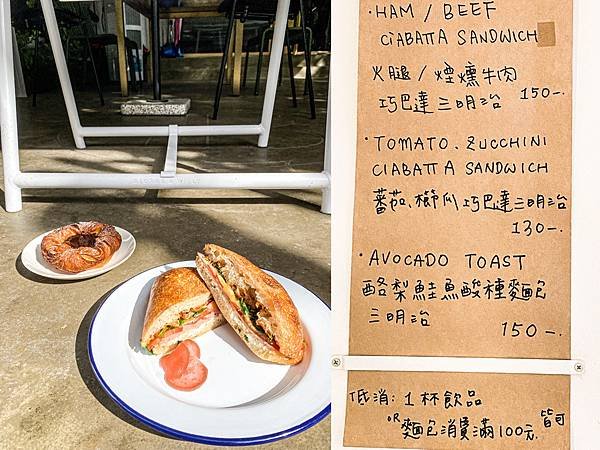 · HAM / BEEF
CIABATTA SANDWICH
火腿 / 煙燻牛肉
巧巴達三明治 150-.
· TOMATO. ZUCCHINI
CIABATTA SANDWICH
蕃茄、櫛瓜巧巴達三明治
130-.
· AVOCADO TOAST
酪梨鮭魚酸種麵包
三明治
150-.
低消: 1杯飲品
OR 麵包消費滿100元. 皆可